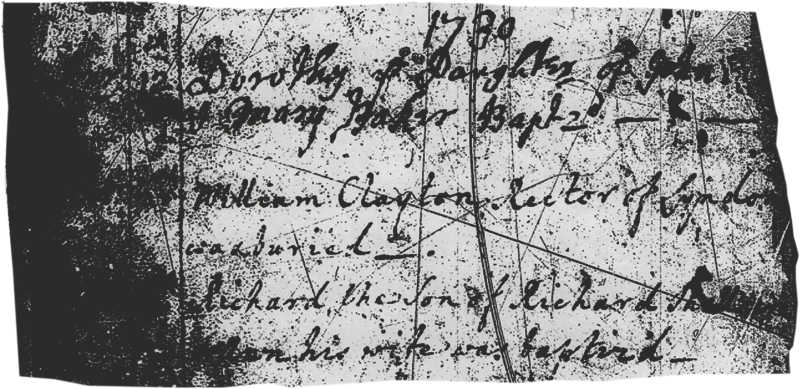 1730
Dorothy ye Daughter of John
Mary Baker Bapt
William Clayton Rector of Lyndon
was buried
Richard the Son of Richard
his wife was baptiz'd